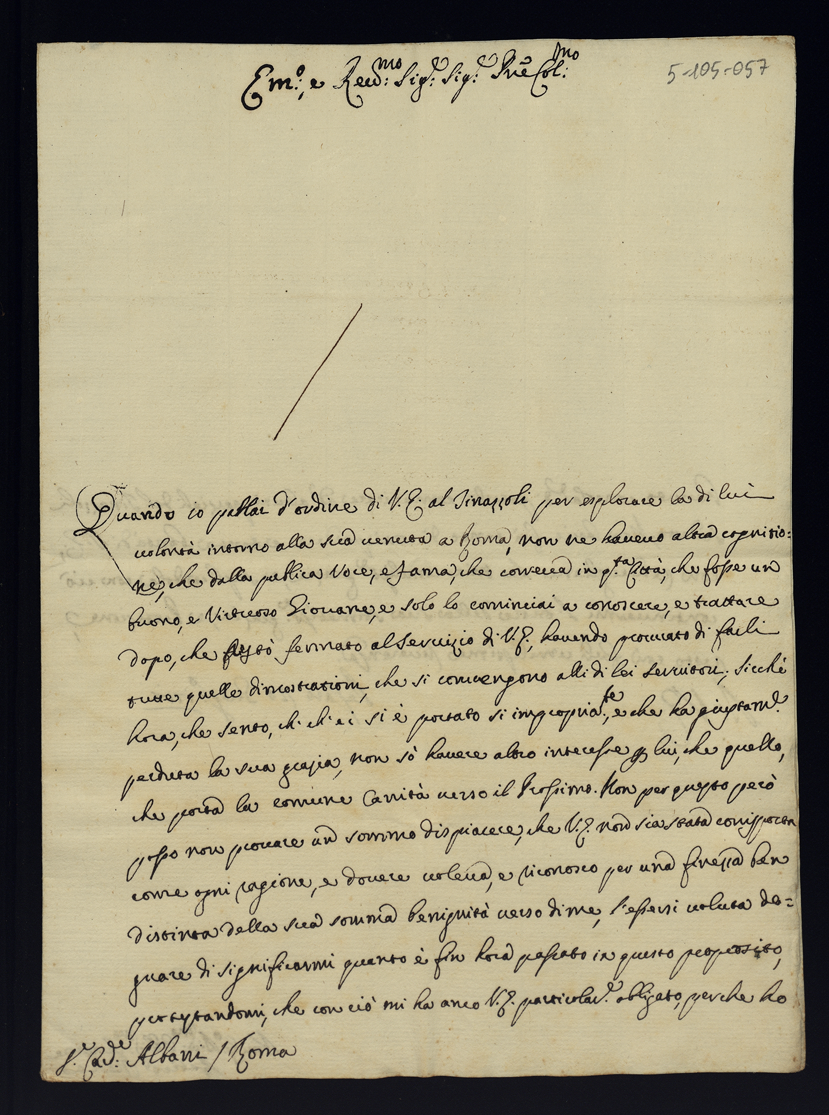 Em.º, e Reu.mo Sig.r Sig.r Pne Col.mo
5-105-057
Quando io parlai d'ordine di V.E. al Sinazzoli per esplorare la di lui
volontà intorno alla sua venuta a Roma, non ne haueuo altra cognitio=
ne, che dalla publica Voce, e fama, che correua in q.ta Città, che fosse un
buono, e Virtuoso Giouane, e solo lo cominciai a conoscere, e trattare
dopo, che fu fermato al Seruizio di V.E., hauendo procurato di farli
tutte quelle dimostrationi, che si conuengono alli di lei seruitori; sicchè
hora, che sento, ch'ei si è portato si impropria.te, e che ha giustam.e
perduta la sua grazia, non sò hauere altro interesse p lui, che quello,
che porta la comune Carità uerso il Prossimo. Non per questo però
posso non prouare un sommo dispiacere, che V.E. non sia stata corrisposta
come ogni ragione, e douere uoleua, e riconosco per una finezza ben
distinta della sua somma benignità uerso di me, l'essersi uoluta de=
gnare di significarmi quanto è fin hora passato in questo proposito,
protestandomi, che con ciò mi ha anco V.E. particolar.e obligato, perche ho
S.r Card.e Albani / Roma